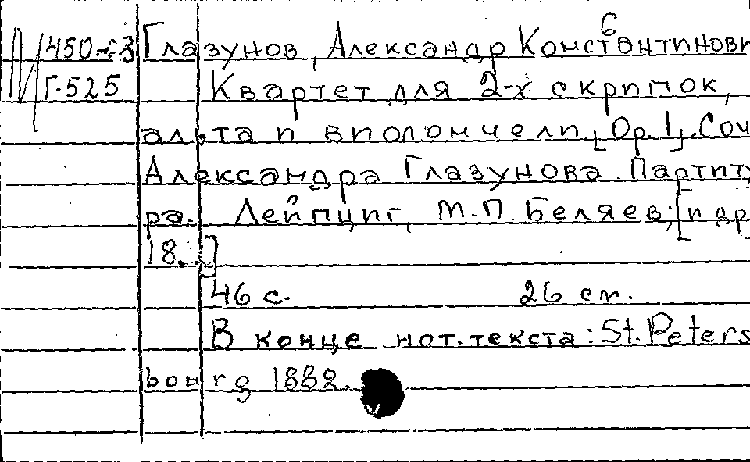 450-23 Глазунов, Александр Константинови
Г-525 Квартет для 2-х скрипок,
альта и виолончели, [Op.1]. Соч
Александра Глазунова. Партиту
ра. Лейпциг, М.П. Беляев, [и др
18..]
46 с. 26 см.
В конце нот. текста: St. Peters
bourg 1882.